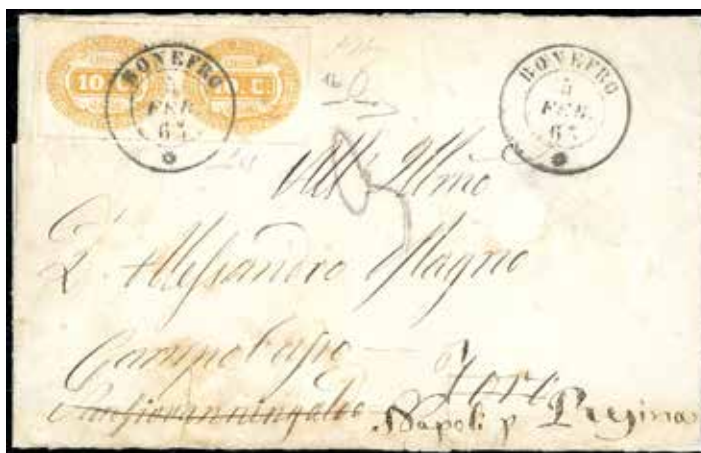 10 C. C.
BONEFRO
5
FEB.
63
BONEFRO
5
FEB.
63
All' Illmo
D. Alessandro Magno
Campobasso — Toro
Sangiovanningaldo
Napoli p Resina